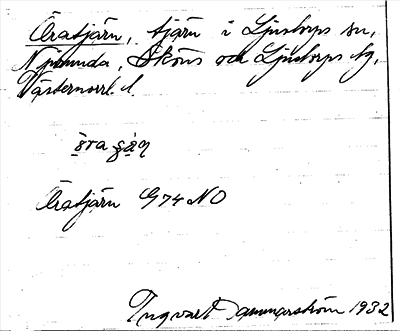 Öratjärn, tjärn i Ljustorps sn,
Njurunda, Sköns och Ljustorps tg,
Västernorrl. l.
öra
Öratjärn G74 NO
Ingvart Dammarström 1932